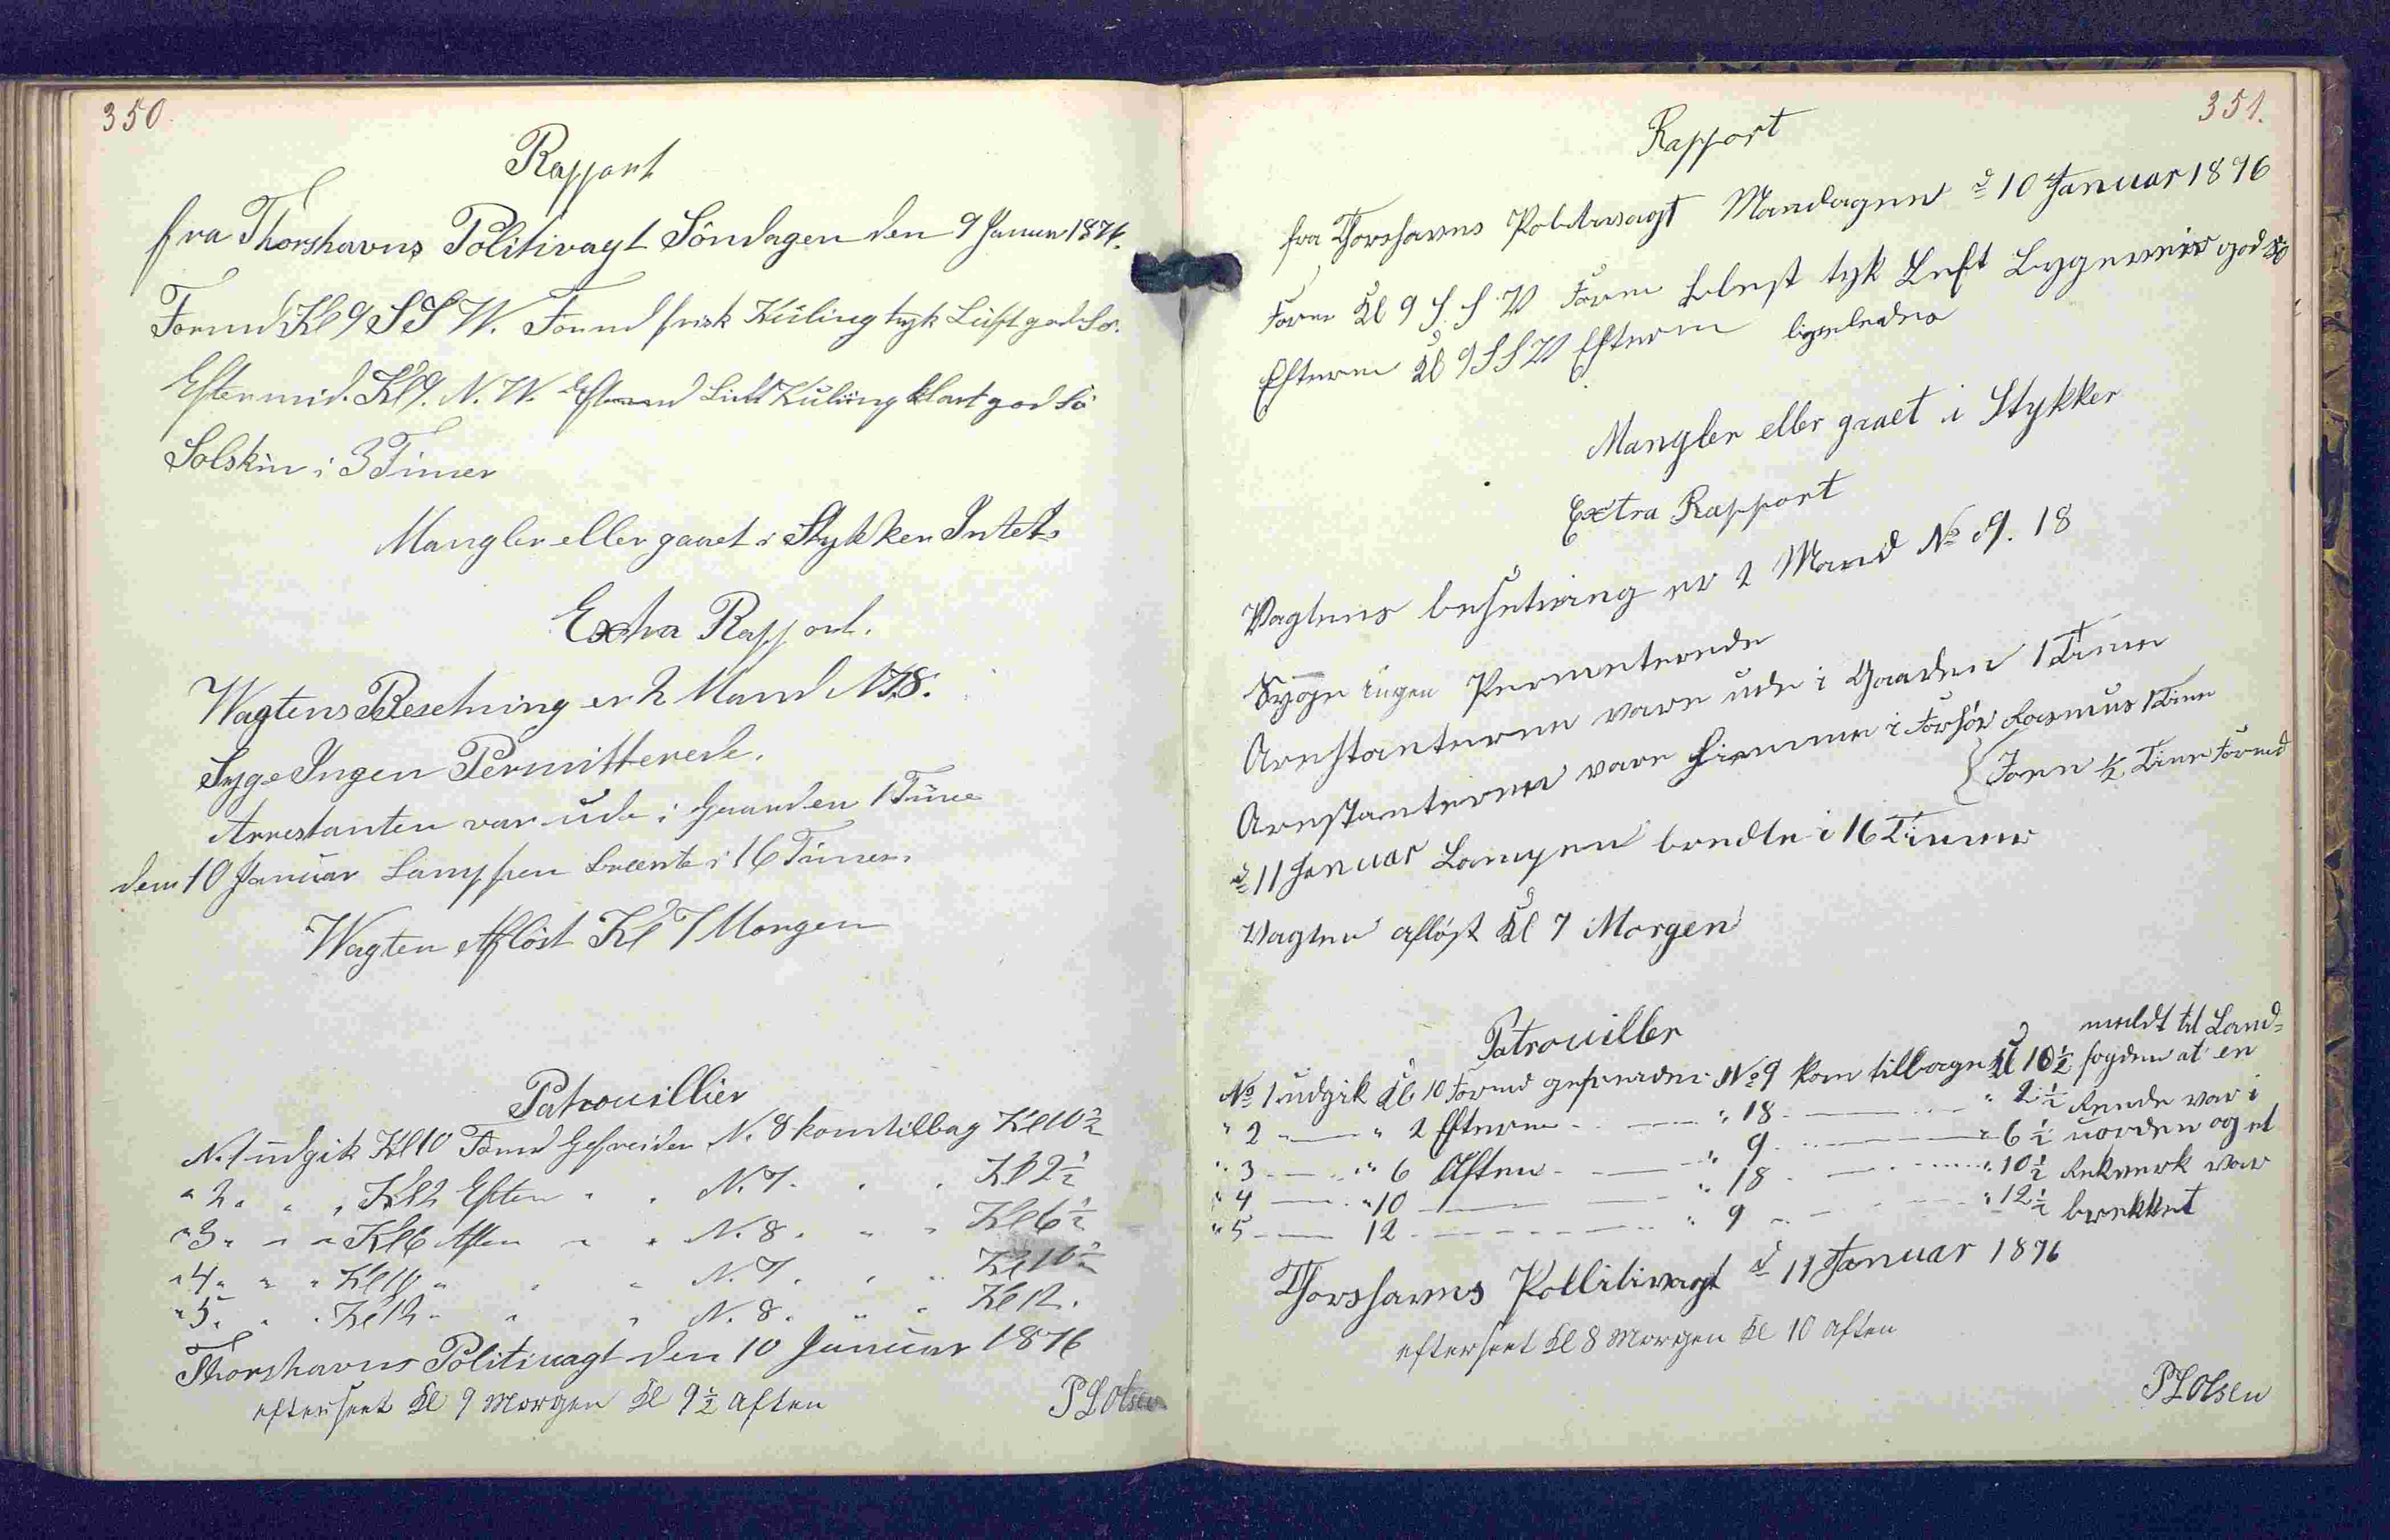 350.
Rapport
fra Thorshavns Politivagt Söndagen den 9 Januar 1876.
Formd Kl 9 S S W. Formd frisk Küling tyk Lüft god Sö.
Eftermid. Kl 9. N. W. Eftermd Kuling klart god Sö
Solskin i 3 Timer
Mangler eller gaaet i Stykker Intet
Extra Rapport.
Wagtens Besetning er 2 Mand N 7.8.
Syge Ingen Permitterede.
Arrestanten var ude i Gaarden 1 Time
den 10 Januar Lamppen brænte i 16 Timer.
Wagten Aflöst Kl 7 Morgen
Patrouillier
N. 1 udgik Kl 10 Formd Gefreider N. 8 kom tilbag Kl 10½
" 2 " " " Kl 2 Efterm " " N. 7. " " Kl 2½
" 3 " " " Kl 6 Aften " " N. 8. " " Kl 6½
" 4 " " " Kl 10 " " " N. 7. " " Kl 10½
" 5. " " Kl 12 " " " N. 8. " " Kl 12.
Thorshavns Politivagt den 10 Januar 1876
efterseet Kl 9 Morgen Kl 9½ Aften
P L Olsen
351.
Rapport
fra Thorshavns Politivagt Mandagen d 10 Januar 1876
Form Kl 9 S. S. W Form tyk Luft god Sö
Efterm Kl 9 S S W Efterm ligeledes
Mangler eller gaaet i Stykker
Extra Rapport
Vagtens besetning er 2 Mand No 9. 18
Syge ingen Permeterede
Arestanterne vare ude i Gaarden 1 Time
Arestanterne vare fremme i Forhör Rasmus 1 Time
{ Joen ½ Time Formd
d 11 Januar Lampen brendte i 16 Timer
Vagten aflöst Kl 7 Morgen
Patrouiller
meldt til Land=
No 1 udgik Kl 10 Formd gefreider No 9 kom tilbage Kl 10½ fogden at en
" 2 — " 2 Efterm — " 18 — " 2½ Rende var i
" 3 — " 6 Aften — " 9 — " 6½ uorden og et
" 4 — " 10 — " 18 — " 10½ Rekverk var
" 5 — 12 — " 9 — " 12½ brekket
Thorshavns Pollitivagt d 11 Januar 1876
efterseet Kl 8 Morgen Kl 10 Aften
P L Olsen